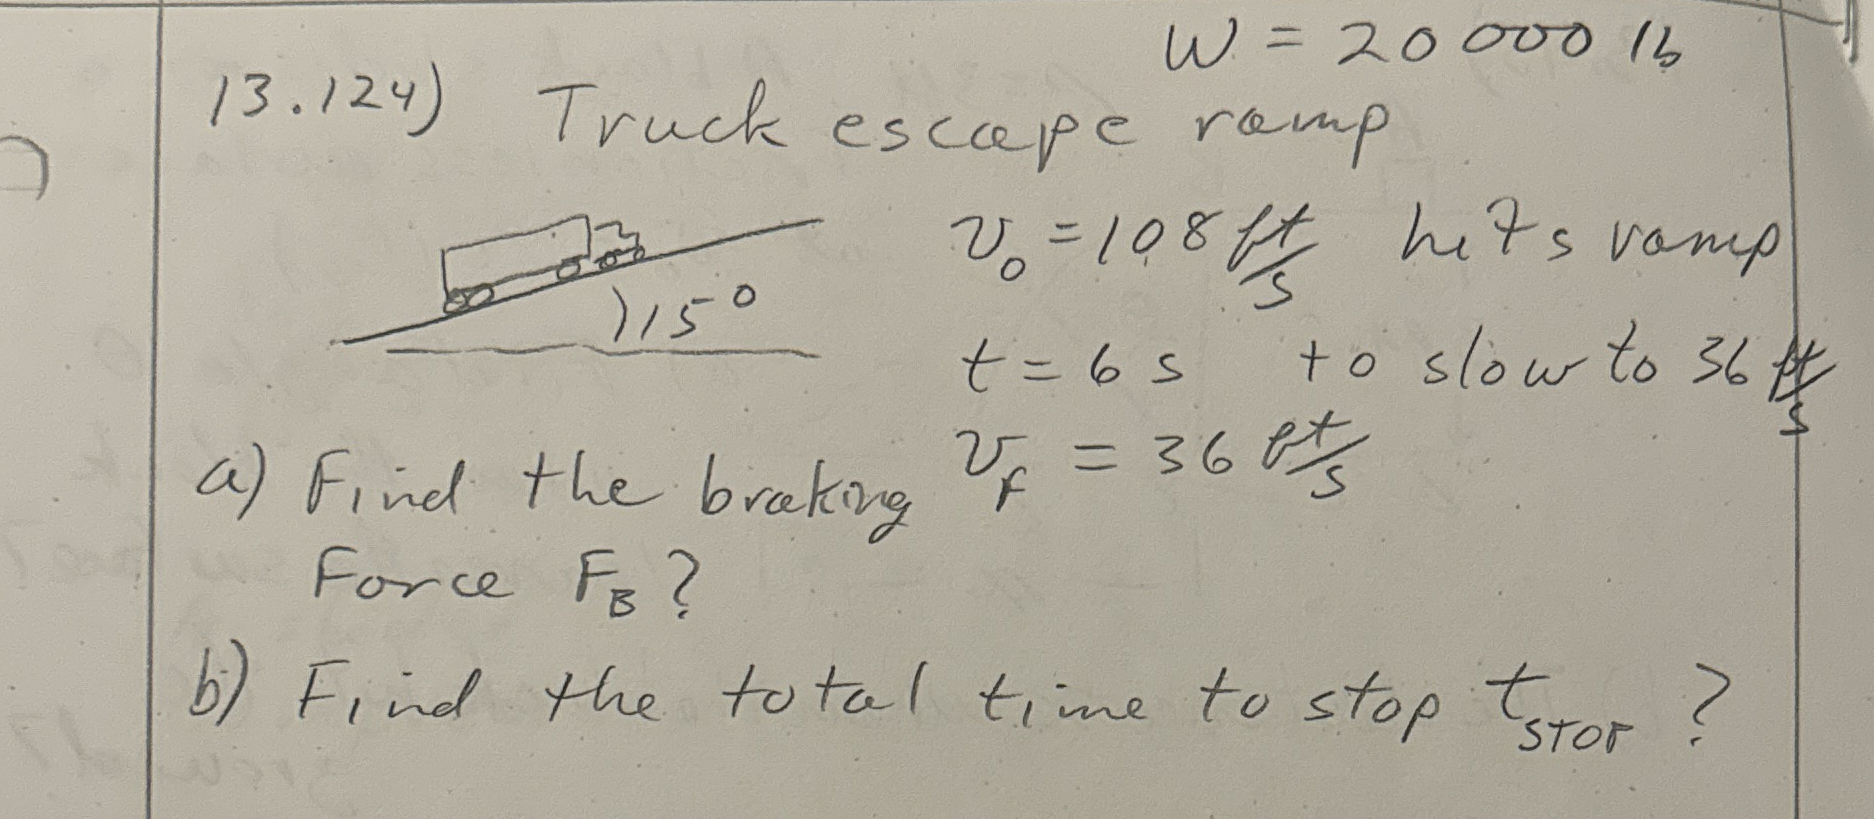 W = 20 000 lb
13.124) Truck escape ramp
v₀ = 108 ft/s hits ramp
15°
t = 6 s to slow to 36 ft/s
v_f = 36 ft/s
a) Find the braking
Force F_B ?
b) Find the total time to stop t_STOP ?